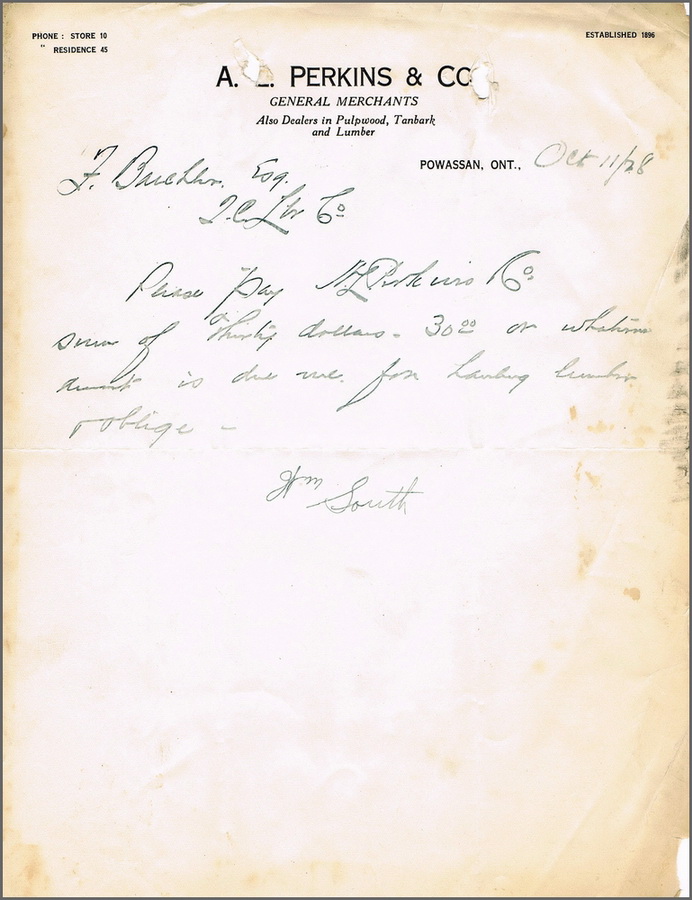 PHONE: STORE 10
" RESIDENCE 45
ESTABLISHED 1896
A. L. PERKINS & CO
GENERAL MERCHANTS
Also Dealers in Pulpwood, Tanbark
and Lumber
POWASSAN, ONT., Oct 11/28
F. Esq.
Co
Please Pay Perkins Co
sum of Thirty dollars - 30.00 or
is due me. for
& oblige -
Wm South